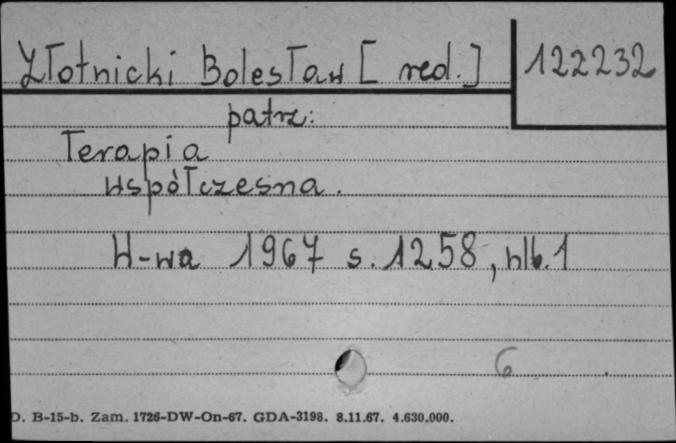 Złotnicki Bolesław [red.] 122232
patrz:
Terapia
współczesna.
W-wa 1967 s. 1258, nlb. 1
6
D. B-15-b. Zam. 1726-DW-On-67. GDA-3198. 8.11.67. 4.630.000.